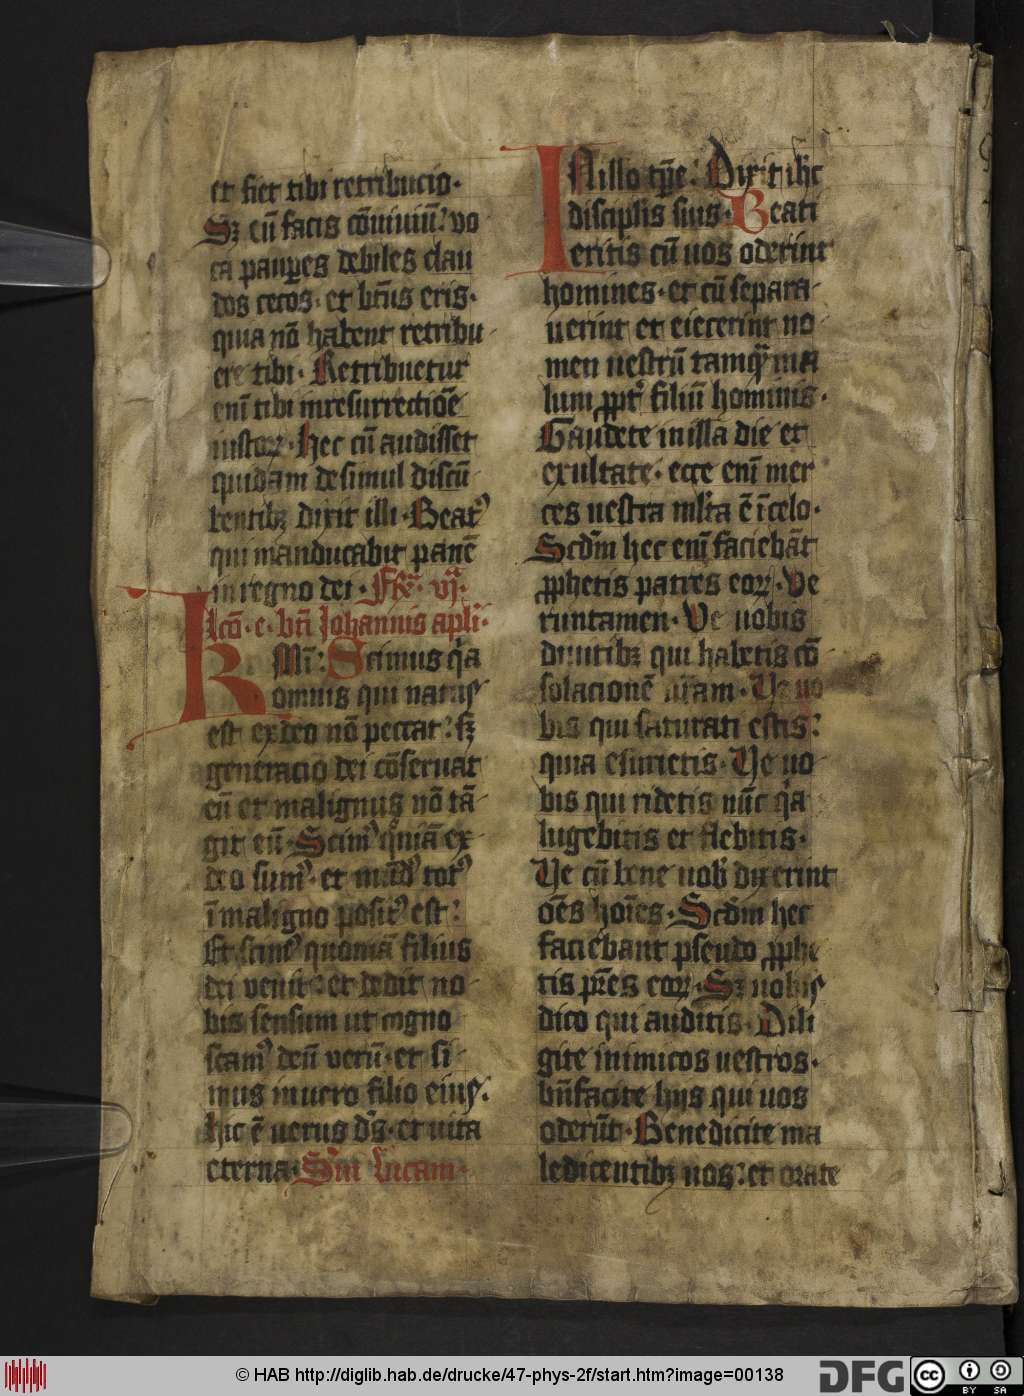 et fiet tibi retribucio.
Sꝫ cū facis cōuiuiū: vo
ca paupes debiles clau
dos cecos. et btūs eris.
quia nō habent retribu
ere tibi. Retribuetur
enī tibi inresurrectiōe
iustoꝝ. Hec cū audisset
quidam desimul discū
bentibꝫ dixit illi. Beatꝰ
qui manducabit panē
in regno dei. Fꝛa vjª.
lcō. e. bti Johannis apli.
KMī: Scimus qa
omnis qui natus
est exdeo nō peccat: sꝫ
generacio dei cōseruat
eū et malignus nō tā
git eū. Scimꝰ qniā ex
deo sumꝰ. et mūdꝰ totꝰ
ī maligno positꝰ est:
Et scimꝰ quoniā filius
dei venit: et dedit no
bis sensum ut cogno
scamꝰ deū verū. et si
mus in uero filio eius:
hic ē uerus ds. et uita
eterna. Sm Lucam.
IN illo tpe: Dixit ihc
disciplis suis. Beati
eritis cū uos oderint
homines. et cū separa
uerint et eiecerint no
men uestrū tamqᷓ ma
lum ꝓpt filiū hominis.
Gaudete in illa die et
exultate: ecce enī mer
ces uestra mlta ē ī celo.
Scdm hec enī faciebāt
ꝓphetis patres eoꝝ. Ve
runtamen. Ve uobis
diuitibꝫ qui habetis cō
solacionē uram. Ve uo
bis qui saturati estis:
quia esurietis. Ve uo
bis qui ridetis nūc qa
lugebitis et flebitis.
Ve cū bene uob dixerint
oēs hoīes. Scdm hec
faciebant pseudo ꝓphe
tis pres eoꝝ. Sꝫ uobis
dico qui auditis. Dili
gite inimicos uestros.
bnfacite hijs qui uos
oderūt. Benedicite ma
ledicentibꝫ uos: et orate
© HAB http://diglib.hab.de/drucke/47-phys-2f/start.htm?image=00138
DFG
cc
BY SA